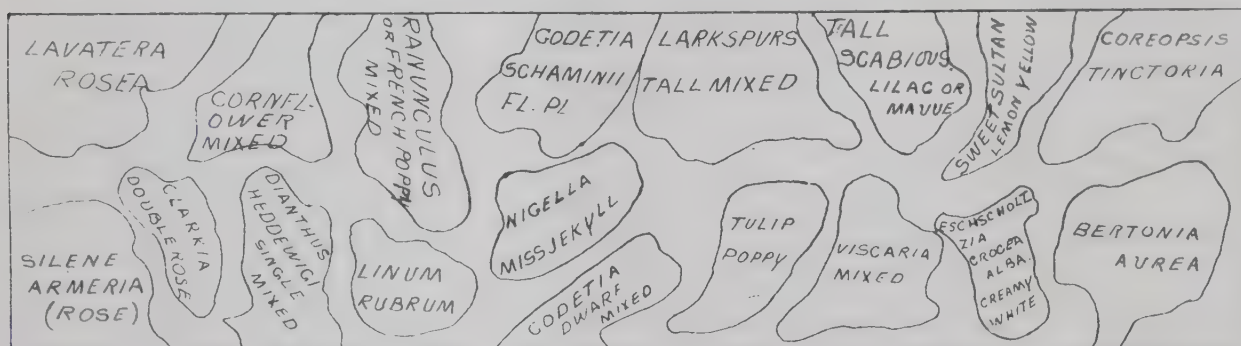 LAVATERA
ROSEA
CORNFL-
OWER
MIXED
RANUNCULUS
OR FRENCH POPPY
MIXED
GODETIA
SCHAMINII
FL. PL.
LARKSPURS
TALL MIXED
TALL
SCABIOUS.
LILAC OR
MAUVE
SWEET SULTAN
LEMON YELLOW
COREOPSIS
TINCTORIA
SILENE
ARMERIA
(ROSE)
CLARKIA
DOUBLE ROSE
DIANTHUS
HEDDEWIGI
SINGLE
MIXED
LINUM
RUBRUM
NIGELLA
MISS JEKYLL
GODETIA
DWARF
MIXED
TULIP
POPPY
VISCARIA
MIXED
ESCHSCHOLT
ZIA
CROCEA
ALBA.
CREAMY
WHITE
BERTONIA
AUREA